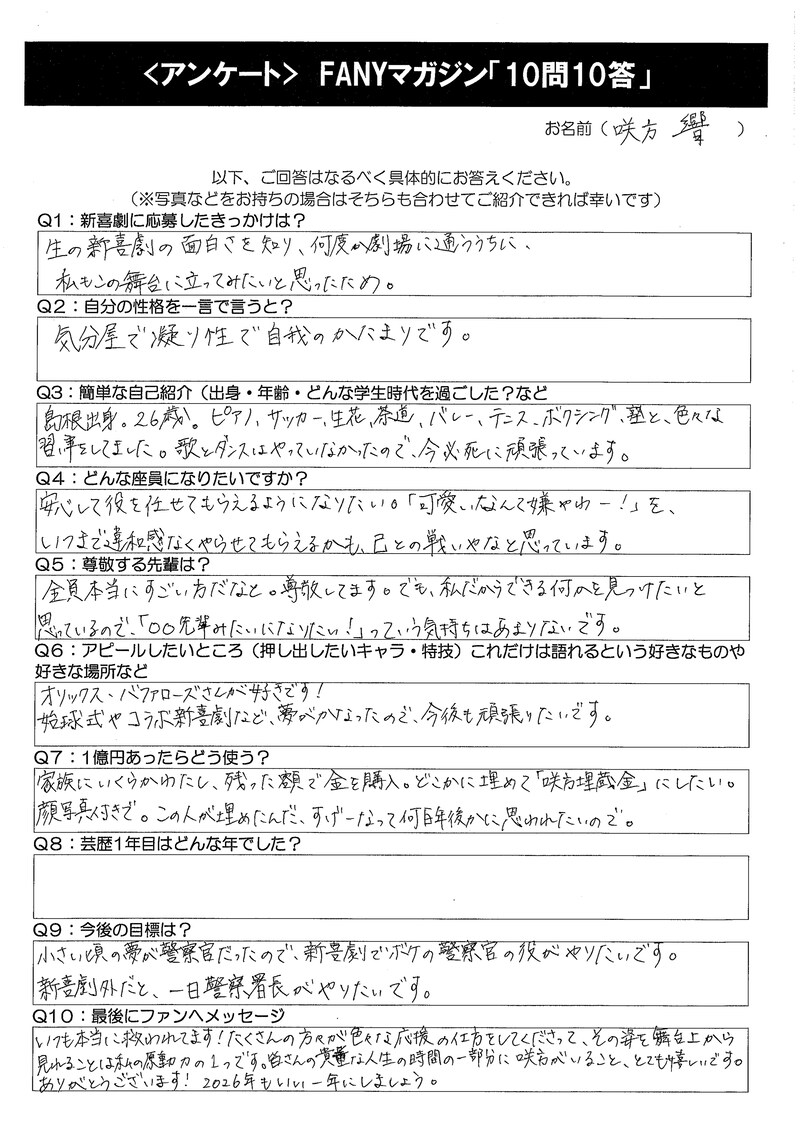 <アンケート> FANYマガジン「10問10答」
お名前（ 咲方 響 ）
以下、ご回答はなるべく具体的にお答えください。
（※写真などをお持ちの場合はそちらも合わせてご紹介できれば幸いです）
Q1：新喜劇に応募したきっかけは？
生の新喜劇の面白さを知り、何度か劇場に通ううちに、
私もこの舞台に立ってみたいと思ったため。
Q2：自分の性格を一言で言うと？
気分屋で凝り性で自我のかたまりです。
Q3：簡単な自己紹介（出身・年齢・どんな学生時代を過ごした？など
島根出身。26歳。ピアノ、サッカー、生花、茶道、バレー、テニス、ボクシング、塾と、色々な
習い事をしてました。歌とダンスはやっていなかったので、今必死に頑張っています。
Q4：どんな座員になりたいですか？
安心して役を任せてもらえるようになりたい。「可愛いなんて嫌やわー！」を、
いつまで違和感なくやらせてもらえるかも、己との戦いやなと思っています。
Q5：尊敬する先輩は？
全員本当にすごい方だなと。尊敬してます。でも、私だからできる何かを見つけたいと
思っているので、「〇〇先輩みたいになりたい！」っていう気持ちはあまりないです。
Q6：アピールしたいところ（押し出したいキャラ・特技）これだけは語れるという好きなものや
好きな場所など
オリックス・バファローズさんが好きです！
始球式やコラボ新喜劇など、夢がかなったので、今後も頑張りたいです。
Q7：1億円あったらどう使う？
家族にいくらかわたし、残った額で金を購入。どこかに埋めて「咲方埋蔵金」にしたい。
顔写真付きで。この人が埋めたんだ、すげーなって何百年後かに思われたいので。
Q8：芸歴1年目はどんな年でした？
Q9：今後の目標は？
小さい頃の夢が警察官だったので、新喜劇でボケの警察官の役がやりたいです。
新喜劇外だと、一日警察署長がやりたいです。
Q10：最後にファンへメッセージ
いつも本当に救われてます！たくさんの方々が色々な応援の仕方をしてくださって、その姿を舞台上から
見れることは私の原動力の1つです。皆さんの貴重な人生の時間の一部分に咲方がいること、とても嬉しいです。
ありがとうございます！2026年もいい一年にしましょう。